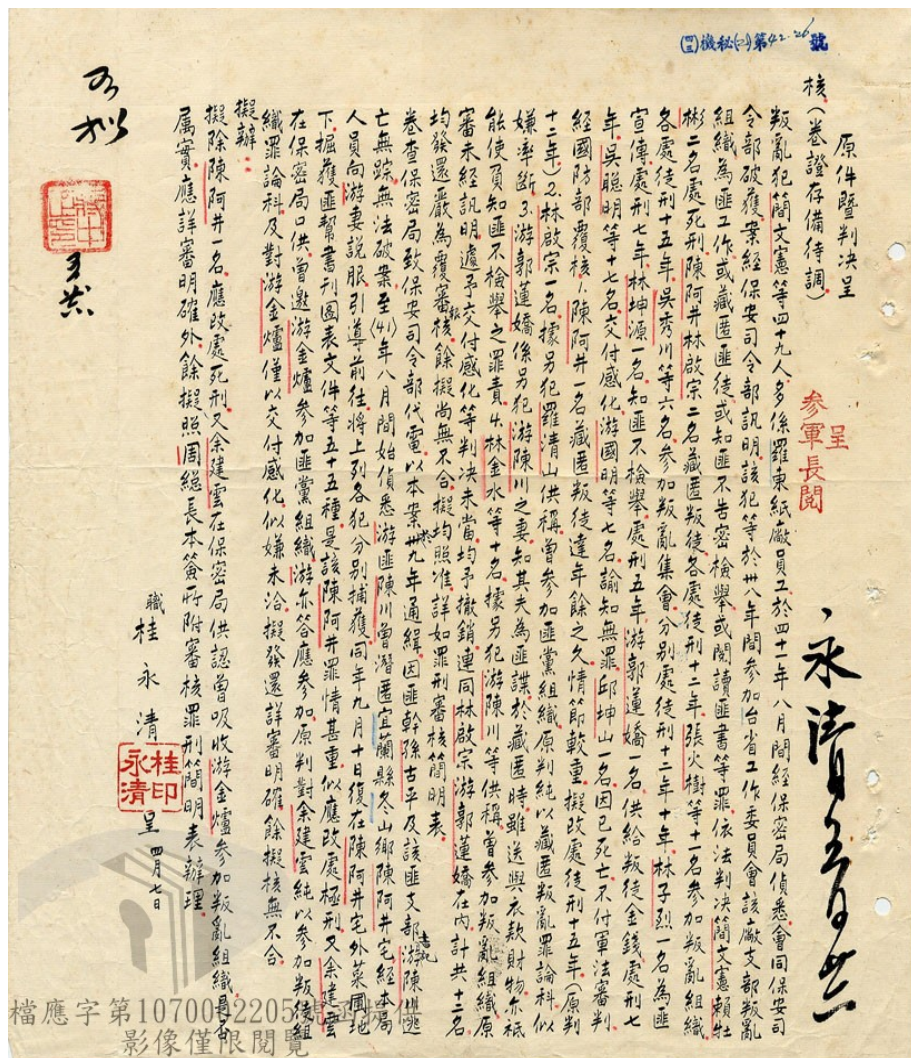 (四三)機秘(乙)第42-26號
原件暨判决呈
核(卷證存備待調)
呈
參軍長閱
叛亂犯簡文憲等四十九人多係羅東紙廠員工於四十一年八月間經保密局偵悉會同保安司
令部破獲案經保安司令部訊明該犯等於卅八年間參加台省工作委員會該廠支部叛亂
組織為匪工作或藏匿匪徒或知匪不告密檢舉或閱讀匪書等罪依法判决簡文憲賴
彬二名處死刑陳阿井林啟宗二名藏匿叛徒各處徒刑十二年張火樹等十一名參加叛亂組織
各處徒刑十五年吳秀川等六名參加叛亂集會分別處徒刑十二年十年林子烈一名為匪
宣傳處刑七年林坤源一名知匪不檢舉處刑五年游郭蓮嬌一名供給叛徒金錢處刑七
年吳聰明等十七名交付感化游國明等七名諭知無罪邱坤山一名因已死亡不付軍法審判
經國防部覆核1.陳阿井一名藏匿叛徒達年餘之久情節較重擬改處徒刑十五年(原判
十二年)2.林啟宗一名據另犯羅清山供稱曾參加匪黨組織原判純以藏匿叛亂罪論科似
嫌率斷3.游郭蓮嬌係另犯游陳川之妻知其夫為匪諜於藏匿時雖送與衣款財物亦祇
能使負知匪不檢舉之罪責4.林金水等十名據另犯游陳川等供稱曾參加叛亂組織原
審未經訊明遽予交付感化等判决未當均予撤銷連同林啟宗游郭蓮嬌在內計共十二名
均發還嚴為覆審報核餘擬尚無不合擬均照准詳如罪刑審核簡明表
卷查保密局致保安司令部代電以本案卅九年通緝因匪幹孫古平及該匪支部書記游陳川逃
亡無踪無法破案至(41)年八月間始偵悉游匪陳川曾潛匿宜蘭縣冬山鄉陳阿井宅經本局
人員向游妻說服引導前往將上列各犯分別捕獲同年九月十日復在陳阿井宅外菜圃地
下掘獲匪幫書刊圖表文件等五十五種是該陳阿井罪情甚重似應改處極刑又余建雲
在保密局口供曾邀游金爐參加匪黨組織游亦答應參加原判對余建雲純以參加叛徒組
織罪論科及對游金爐僅以交付感化似嫌未洽擬發還詳審明確餘擬核無不合
擬辦:
擬除陳阿井一名應改處死刑又余建雲在保密局供認曾吸收游金爐參加叛亂組織是否
屬實應詳審明確外餘擬照周總長本簽所附審核罪刑簡明表辦理
職桂永清呈 四月七日
桂永清印
如擬
蔣中正印
檔應字第1070002205號函提供
影像僅限閱覽